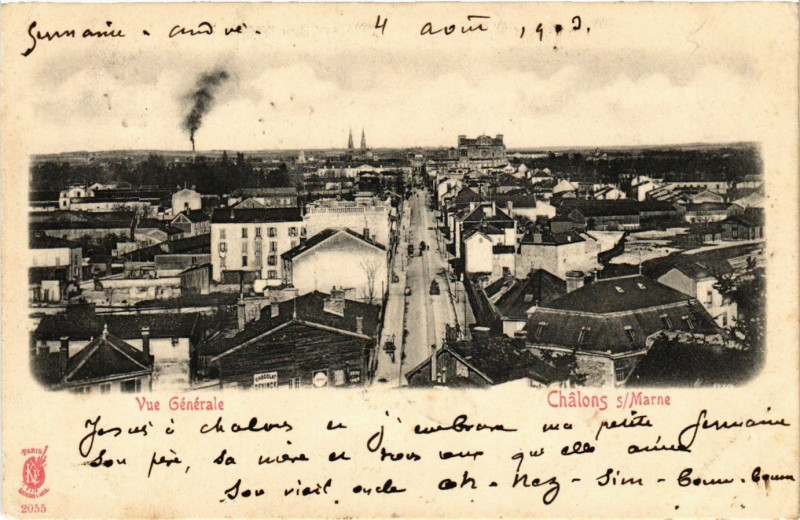 Germaine - andré. 4 août 1903.
CHOCOLAT
Vue Générale Châlons s/Marne
Je suis à chalons et j'embrasse ma petite Germaine
Son père, sa mère et tous ceux qu'elle aime
Son vieil oncle - Nez - Sim - Boum - Boum
PARIS
2055